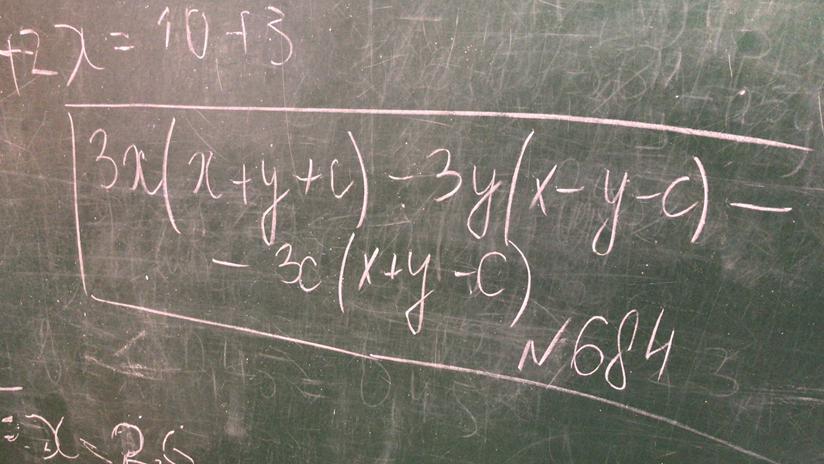 +2x = 10+3
3x(x+y+c) - 3y(x-y-c) -
- 3c(x+y-c)
N684